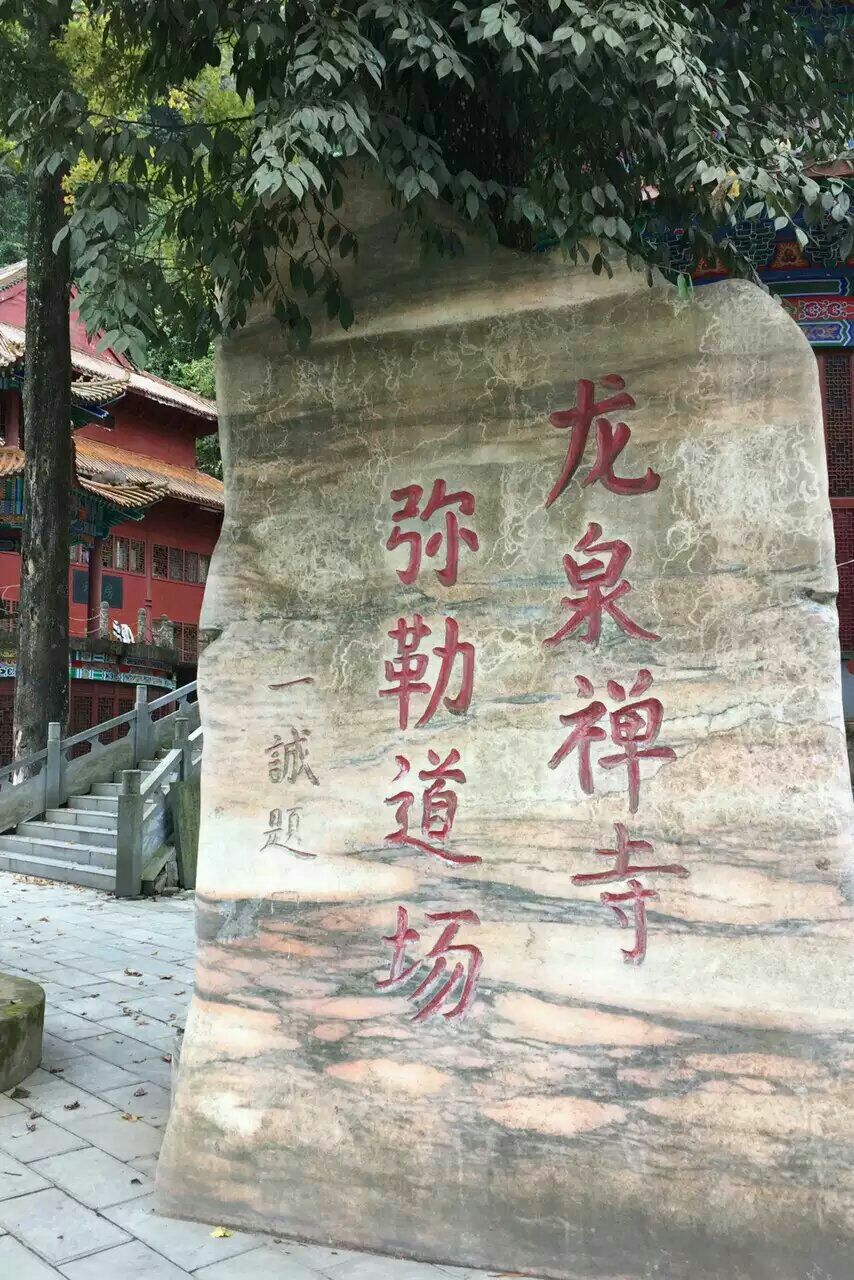 龙泉禅寺
弥勒道场
一誠題